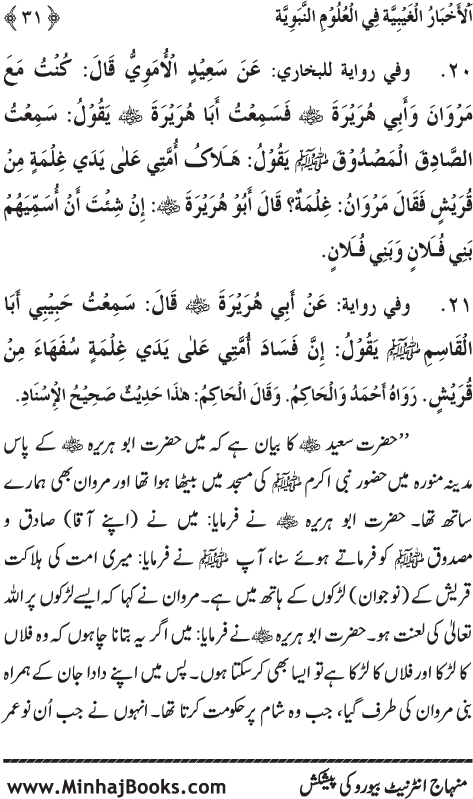 اَلْأَخْبَارُ الْغَيْبِيَّة فِي الْعُلُوْمِ النَّبَوِيَّة ﴿ ٣١ ﴾
٢٠. وفي رواية للبخاري: عَنْ سَعِيْدٍ الْأُمَوِيُّ قَالَ: كُنْتُ مَعَ
مَرْوَانَ وَأَبِي هُرَيْرَةَ ؓ فَسَمِعْتُ أَبَا هُرَيْرَةَ ؓ يَقُوْلُ: سَمِعْتُ
الصَّادِقَ الْمَصْدُوْقَ ﷺ يَقُوْلُ: هَلَاكُ أُمَّتِي عَلَى يَدَي غِلْمَةٍ مِنْ
قُرَيْشٍ فَقَالَ مَرْوَانُ: غِلْمَةٌ؟ قَالَ أَبُوْ هُرَيْرَةَ ؓ: إِنْ شِئْتَ أَنْ أُسَمِّيَهُمْ
بَنِي فُلَانٍ وَبَنِي فُلَانٍ.
٢١. وفي رواية: عَنْ أَبِي هُرَيْرَةَ ؓ قَالَ: سَمِعْتُ حَبِيْبِي أَبَا
الْقَاسِمِ ﷺ يَقُوْلُ: إِنَّ فَسَادَ أُمَّتِي عَلَى يَدَي غِلْمَةٍ سُفَهَاءَ مِنْ
قُرَيْشٍ. رَوَاهُ أَحْمَدُ وَالْحَاكِمُ. وَقَالَ الْحَاكِمُ: هٰذَا حَدِيْثٌ صَحِيْحُ الْإِسْنَادِ.
’’حضرت سعید ؓ کا بیان ہے کہ میں حضرت ابو ہریرہ ؓ کے پاس
مدینہ منورہ میں حضور نبی اکرم ﷺ کی مسجد میں بیٹھا ہوا تھا اور مروان بھی ہمارے
ساتھ تھا۔ حضرت ابو ہریرہ ؓ نے فرمایا: میں نے (اپنے آقا) صادق و
مصدوق ﷺ کو فرماتے ہوئے سنا، آپ ﷺ نے فرمایا: میری امت کی ہلاکت
قریش کے (نوجوان) لڑکوں کے ہاتھ میں ہے۔ مروان نے کہا کہ ایسے لڑکوں پر اللہ
تعالیٰ کی لعنت ہو۔ حضرت ابو ہریرہ ؓ نے فرمایا: میں اگر یہ بتانا چاہوں کہ وہ فلاں
کا لڑکا اور فلاں کا لڑکا ہے تو ایسا بھی کرسکتا ہوں۔ پس میں اپنے دادا جان کے ہمراہ
بنی مروان کی طرف گیا، جب وہ شام پر حکومت کرتا تھا۔ انہوں نے جب اُن نو عمر
منہاج انٹرنیٹ بیورو کی پیشکش www.MinhajBooks.com